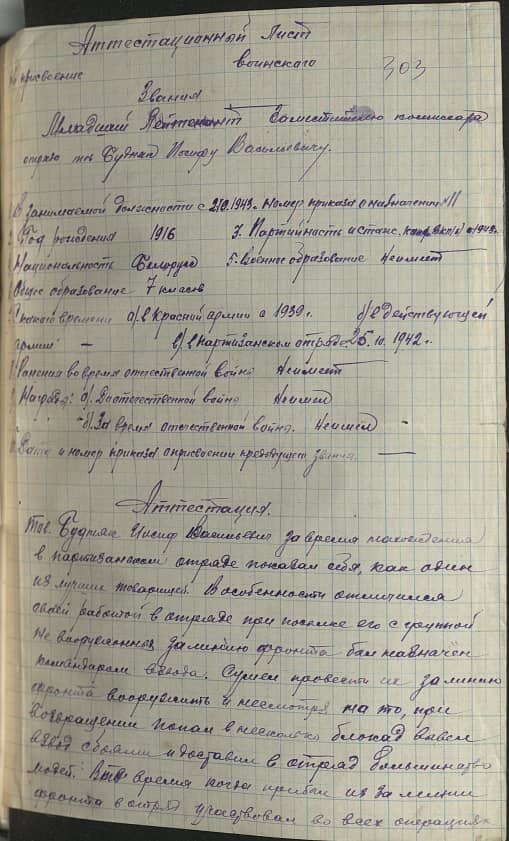 Аттестационный лист
303
присвоение воинского
звания
Младший Лейтенант Заместителю комиссара
отряда тов Будник Иосифу Васильевичу.
В занимаемой должности с 1943. Номер приказа о назначении №11
Год рождения 1916 3. Партийность и стаж. ВКП/б/ с 1943г.
Национальность Белорус 5. Военное образование Не имеет
Общее образование 7 классов
С какого времени а/ в Красной армии с 1939г. б/ в действующей
армии — в/ в партизанском отряде 25.10.1942г.
Ранения во время отечественной войны Не имеет
Награды: а/. До отечественной войны Не имел
- б/. За время отечественной войны. Не имел -
Дата и номер приказа о присвоении предыдущ. звания. —
Аттестация.
Тов. Будник Иосиф Васильевич за время нахождения
в партизанском отряде показал себя, как один
из лучших товарищей. В особенности отличился
своей работой в отряде при посылке его с группой
не вооруженных за линию фронта был назначен
командиром взвода. Сумел провести их за линию
фронта вооружить и несмотря на то, при
возвращении попал в несколько блокад вывел
взвод с боями и доставил в отряд большинство
людей. В то время когда прибыл из за линии
фронта в отряд участвовал во всех операциях